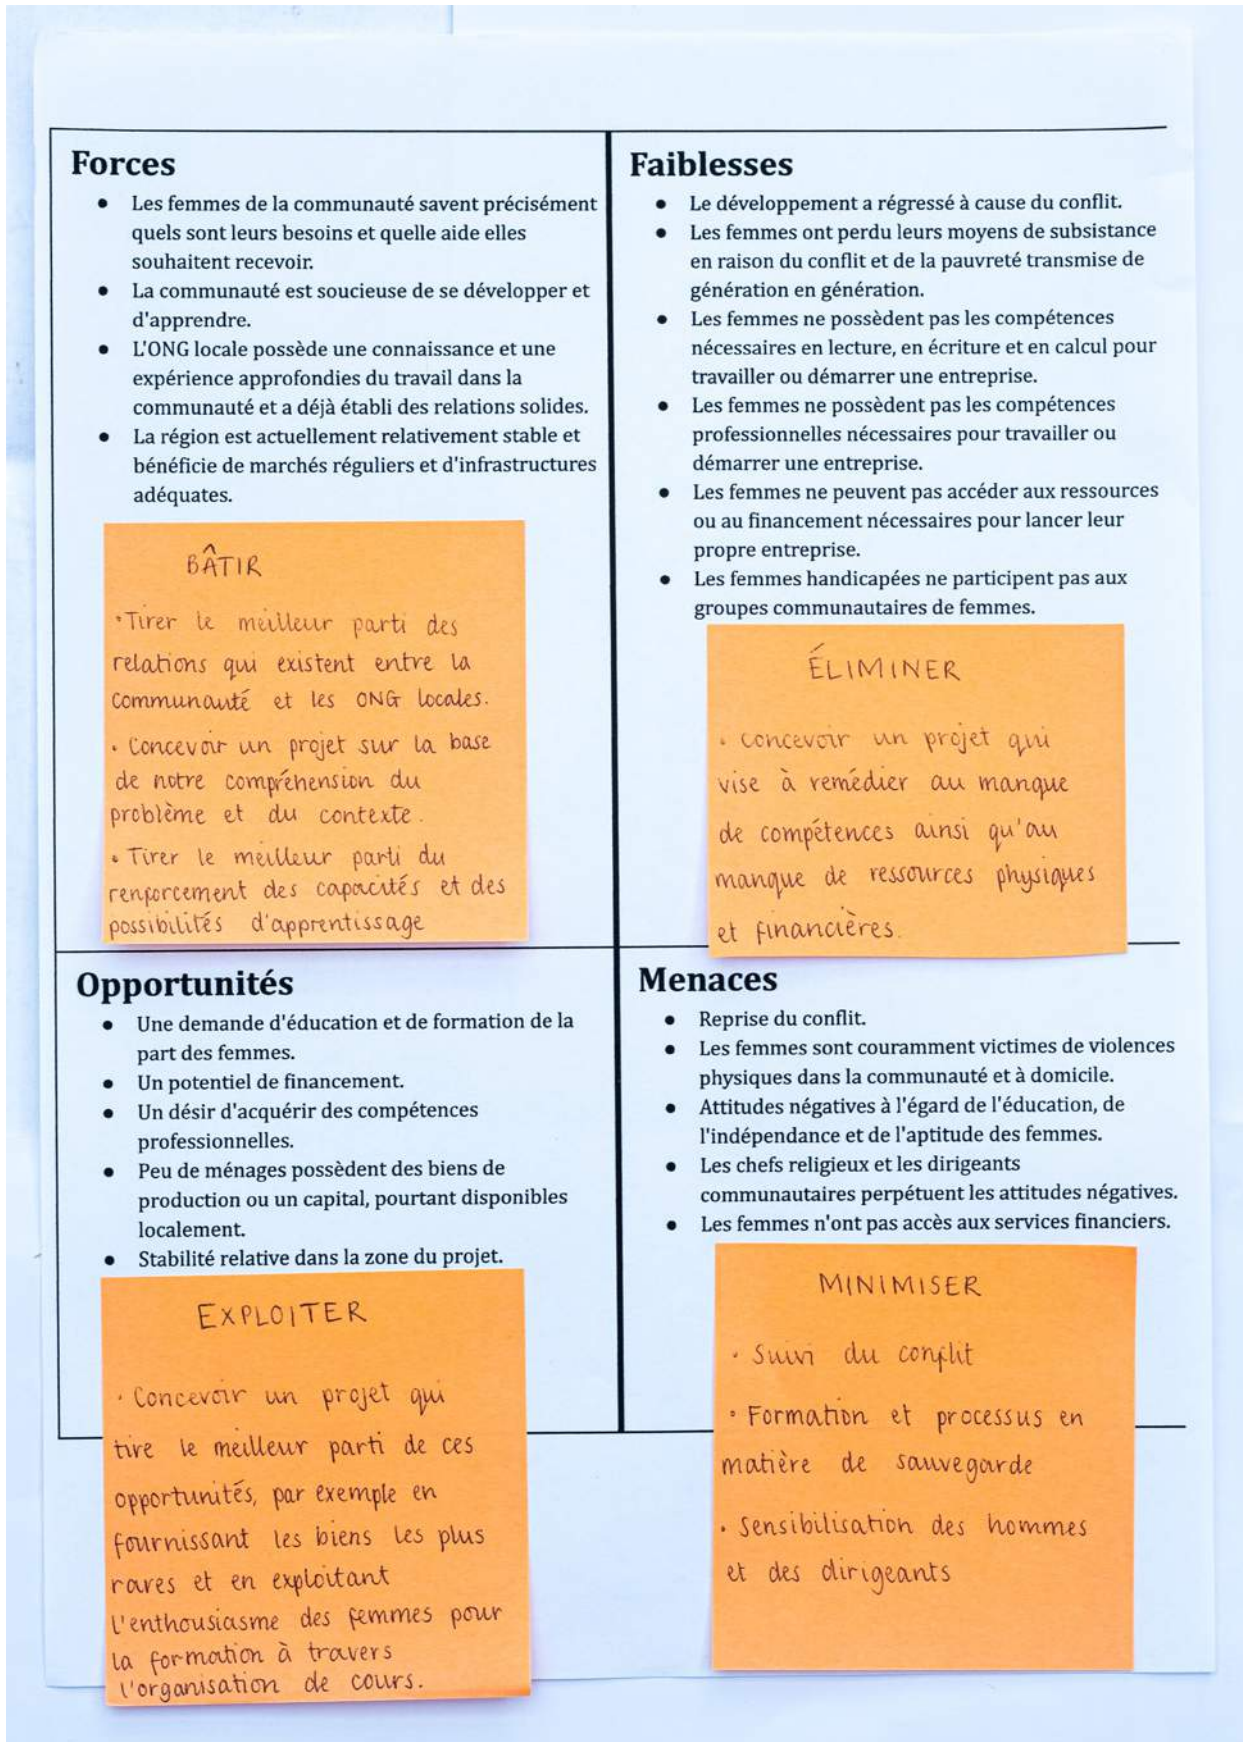 Forces
• Les femmes de la communauté savent précisément
quels sont leurs besoins et quelle aide elles
souhaitent recevoir.
• La communauté est soucieuse de se développer et
d'apprendre.
• L'ONG locale possède une connaissance et une
expérience approfondies du travail dans la
communauté et a déjà établi des relations solides.
• La région est actuellement relativement stable et
bénéficie de marchés réguliers et d'infrastructures
adéquates.
BÂTIR
• Tirer le meilleur parti des
relations qui existent entre la
communauté et les ONG locales.
• Concevoir un projet sur la base
de notre compréhension du
problème et du contexte.
• Tirer le meilleur parti du
renforcement des capacités et des
possibilités d'apprentissage
Faiblesses
• Le développement a régressé à cause du conflit.
• Les femmes ont perdu leurs moyens de subsistance
en raison du conflit et de la pauvreté transmise de
génération en génération.
• Les femmes ne possèdent pas les compétences
nécessaires en lecture, en écriture et en calcul pour
travailler ou démarrer une entreprise.
• Les femmes ne possèdent pas les compétences
professionnelles nécessaires pour travailler ou
démarrer une entreprise.
• Les femmes ne peuvent pas accéder aux ressources
ou au financement nécessaires pour lancer leur
propre entreprise.
• Les femmes handicapées ne participent pas aux
groupes communautaires de femmes.
ÉLIMINER
• concevoir un projet qui
vise à remédier au manque
de compétences ainsi qu'au
manque de ressources physiques
et financières.
Opportunités
• Une demande d'éducation et de formation de la
part des femmes.
• Un potentiel de financement.
• Un désir d'acquérir des compétences
professionnelles.
• Peu de ménages possèdent des biens de
production ou un capital, pourtant disponibles
localement.
• Stabilité relative dans la zone du projet.
EXPLOITER
• Concevoir un projet qui
tire le meilleur parti de ces
opportunités, par exemple en
fournissant les biens les plus
rares et en exploitant
l'enthousiasme des femmes pour
la formation à travers
l'organisation de cours.
Menaces
• Reprise du conflit.
• Les femmes sont couramment victimes de violences
physiques dans la communauté et à domicile.
• Attitudes négatives à l'égard de l'éducation, de
l'indépendance et de l'aptitude des femmes.
• Les chefs religieux et les dirigeants
communautaires perpétuent les attitudes négatives.
• Les femmes n'ont pas accès aux services financiers.
MINIMISER
• Suivi du conflit
• Formation et processus en
matière de sauvegarde
• Sensibilisation des hommes
et des dirigeants